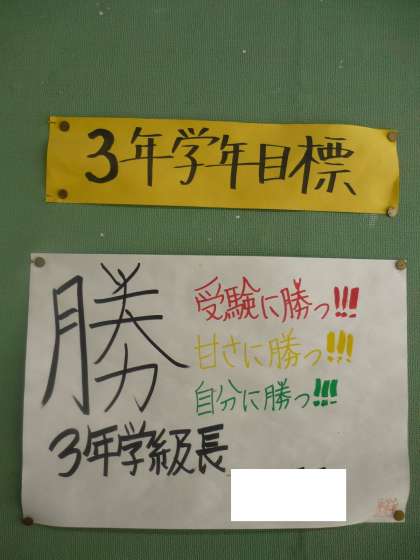 3年学年目標
勝
受験に勝つ!!!
甘さに勝つ!!!
自分に勝つ!!!
3年学級長